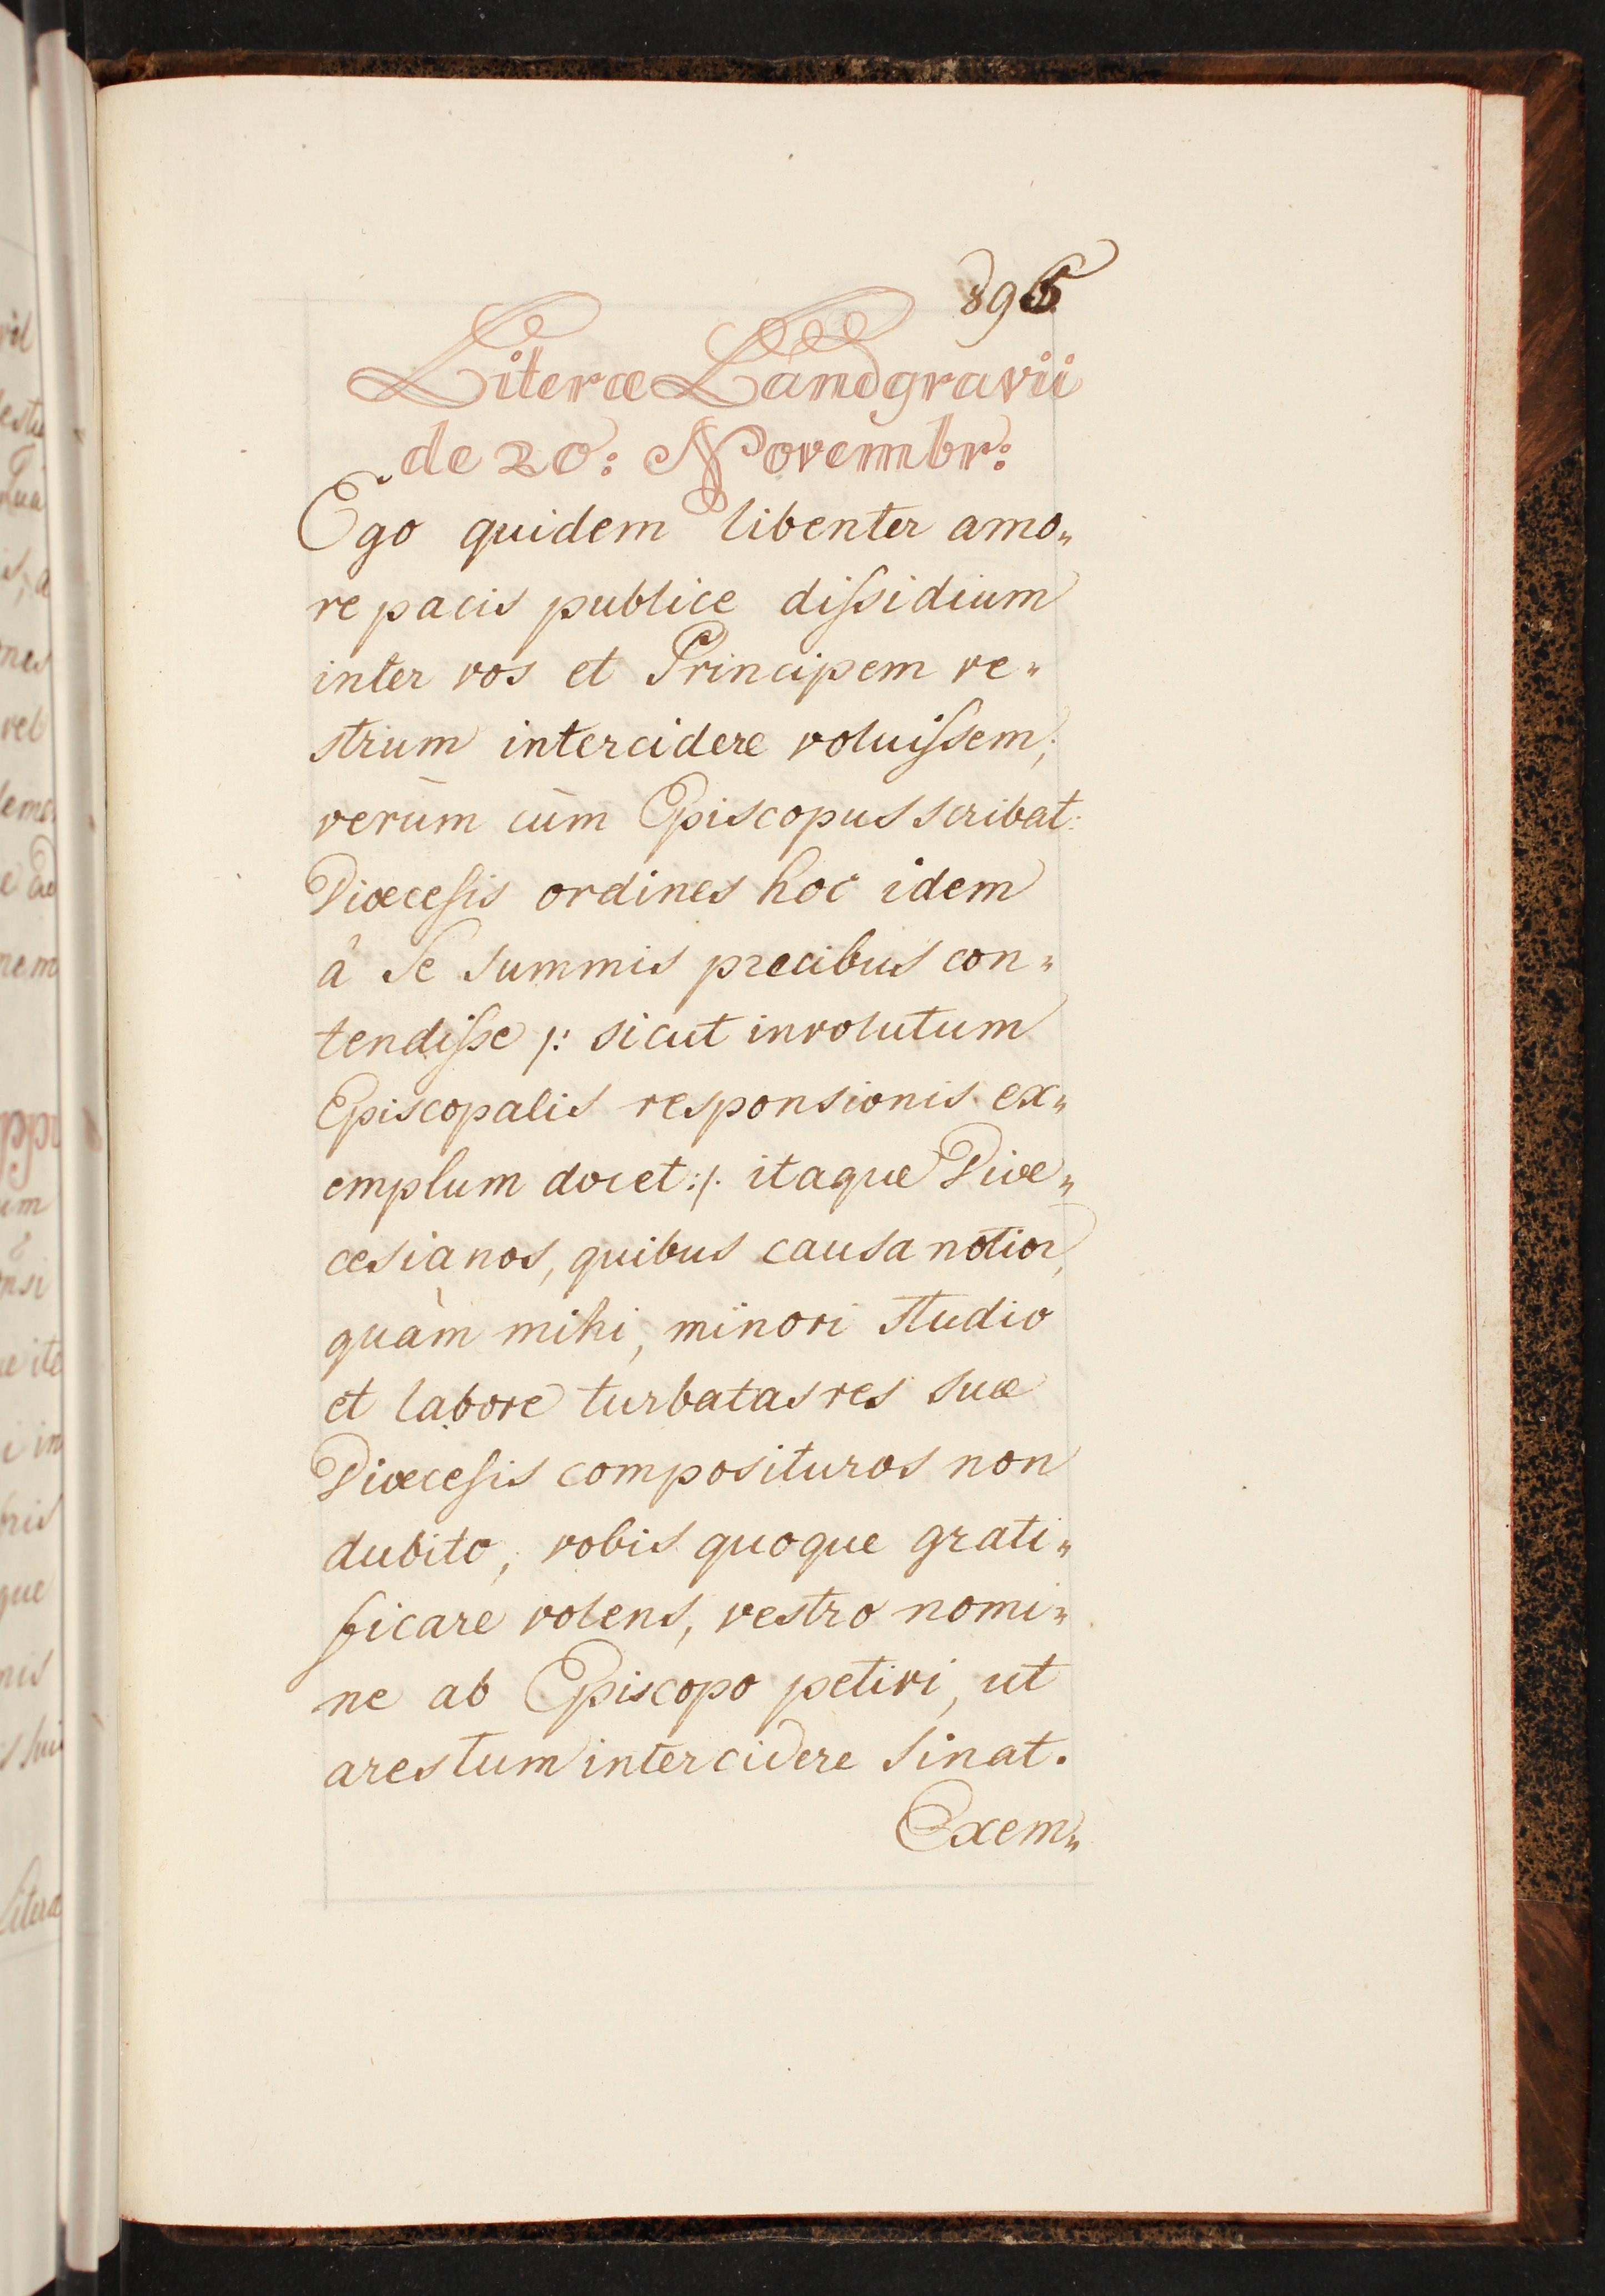 895
Literæ Landgravii
de 20: Novembr:
Ego quidem libenter amo„
re pacis publice diſsidium
inter vos et Principem ve„
strum intercidere voluiſsem;
verùm cùm Episcopus scribat:
Diœceſis ordines hoc idem
â se summis precibus con„
tendiſse /: sicut involutum
Episcopalis responsionis ex„
emplum docet :/ itaque Diœ„
cesianos, quibus causa notior,
quàm mihi, minori studio
et labore turbatas res suæ
Diœceſis composituros non
dubito, vobis quoque grati„
ficare volens, vestro nomi„
ne ab Episcopo petivi, ut
arestum intercidere sinat.
Exem„